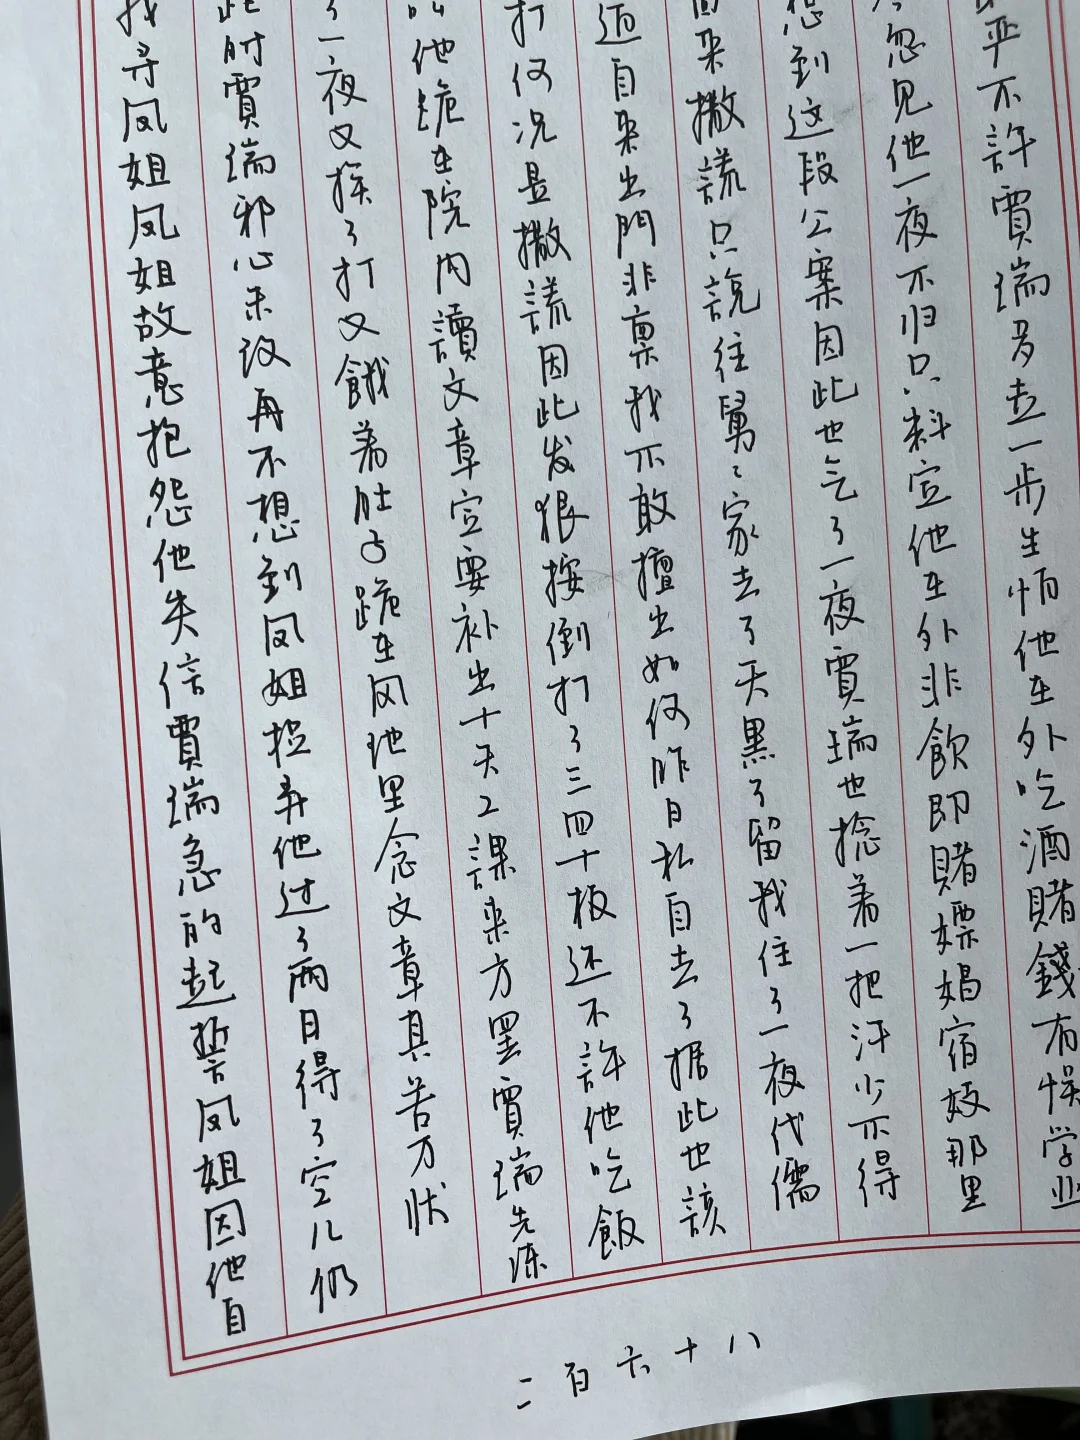 严不許賈瑞多走一步生怕他在外吃酒賭錢有悞学业
忽见他一夜不归只料定他在外非飲即賭嫖娼宿妓那里
想到这段公案因此也气了一夜賈瑞也捻着一把汗少不得
回来撒謊只說往舅〻家去了天黑了留我住了一夜代儒
道自来出門非禀我不敢擅出如何昨日私自去了据此也該
打何况是撒謊因此发狠按倒打了三四十板还不許他吃飯
叫他跪在院内讀文章定要补出十天工課来方罢賈瑞先冻
了一夜又挨了打又餓着肚子跪在风地里念文章其苦万状
此时賈瑞邪心未改再不想到凤姐捉弄他过了兩日得了空儿仍
找寻凤姐凤姐故意抱怨他失信賈瑞急的起誓凤姐因他自
二百六十八